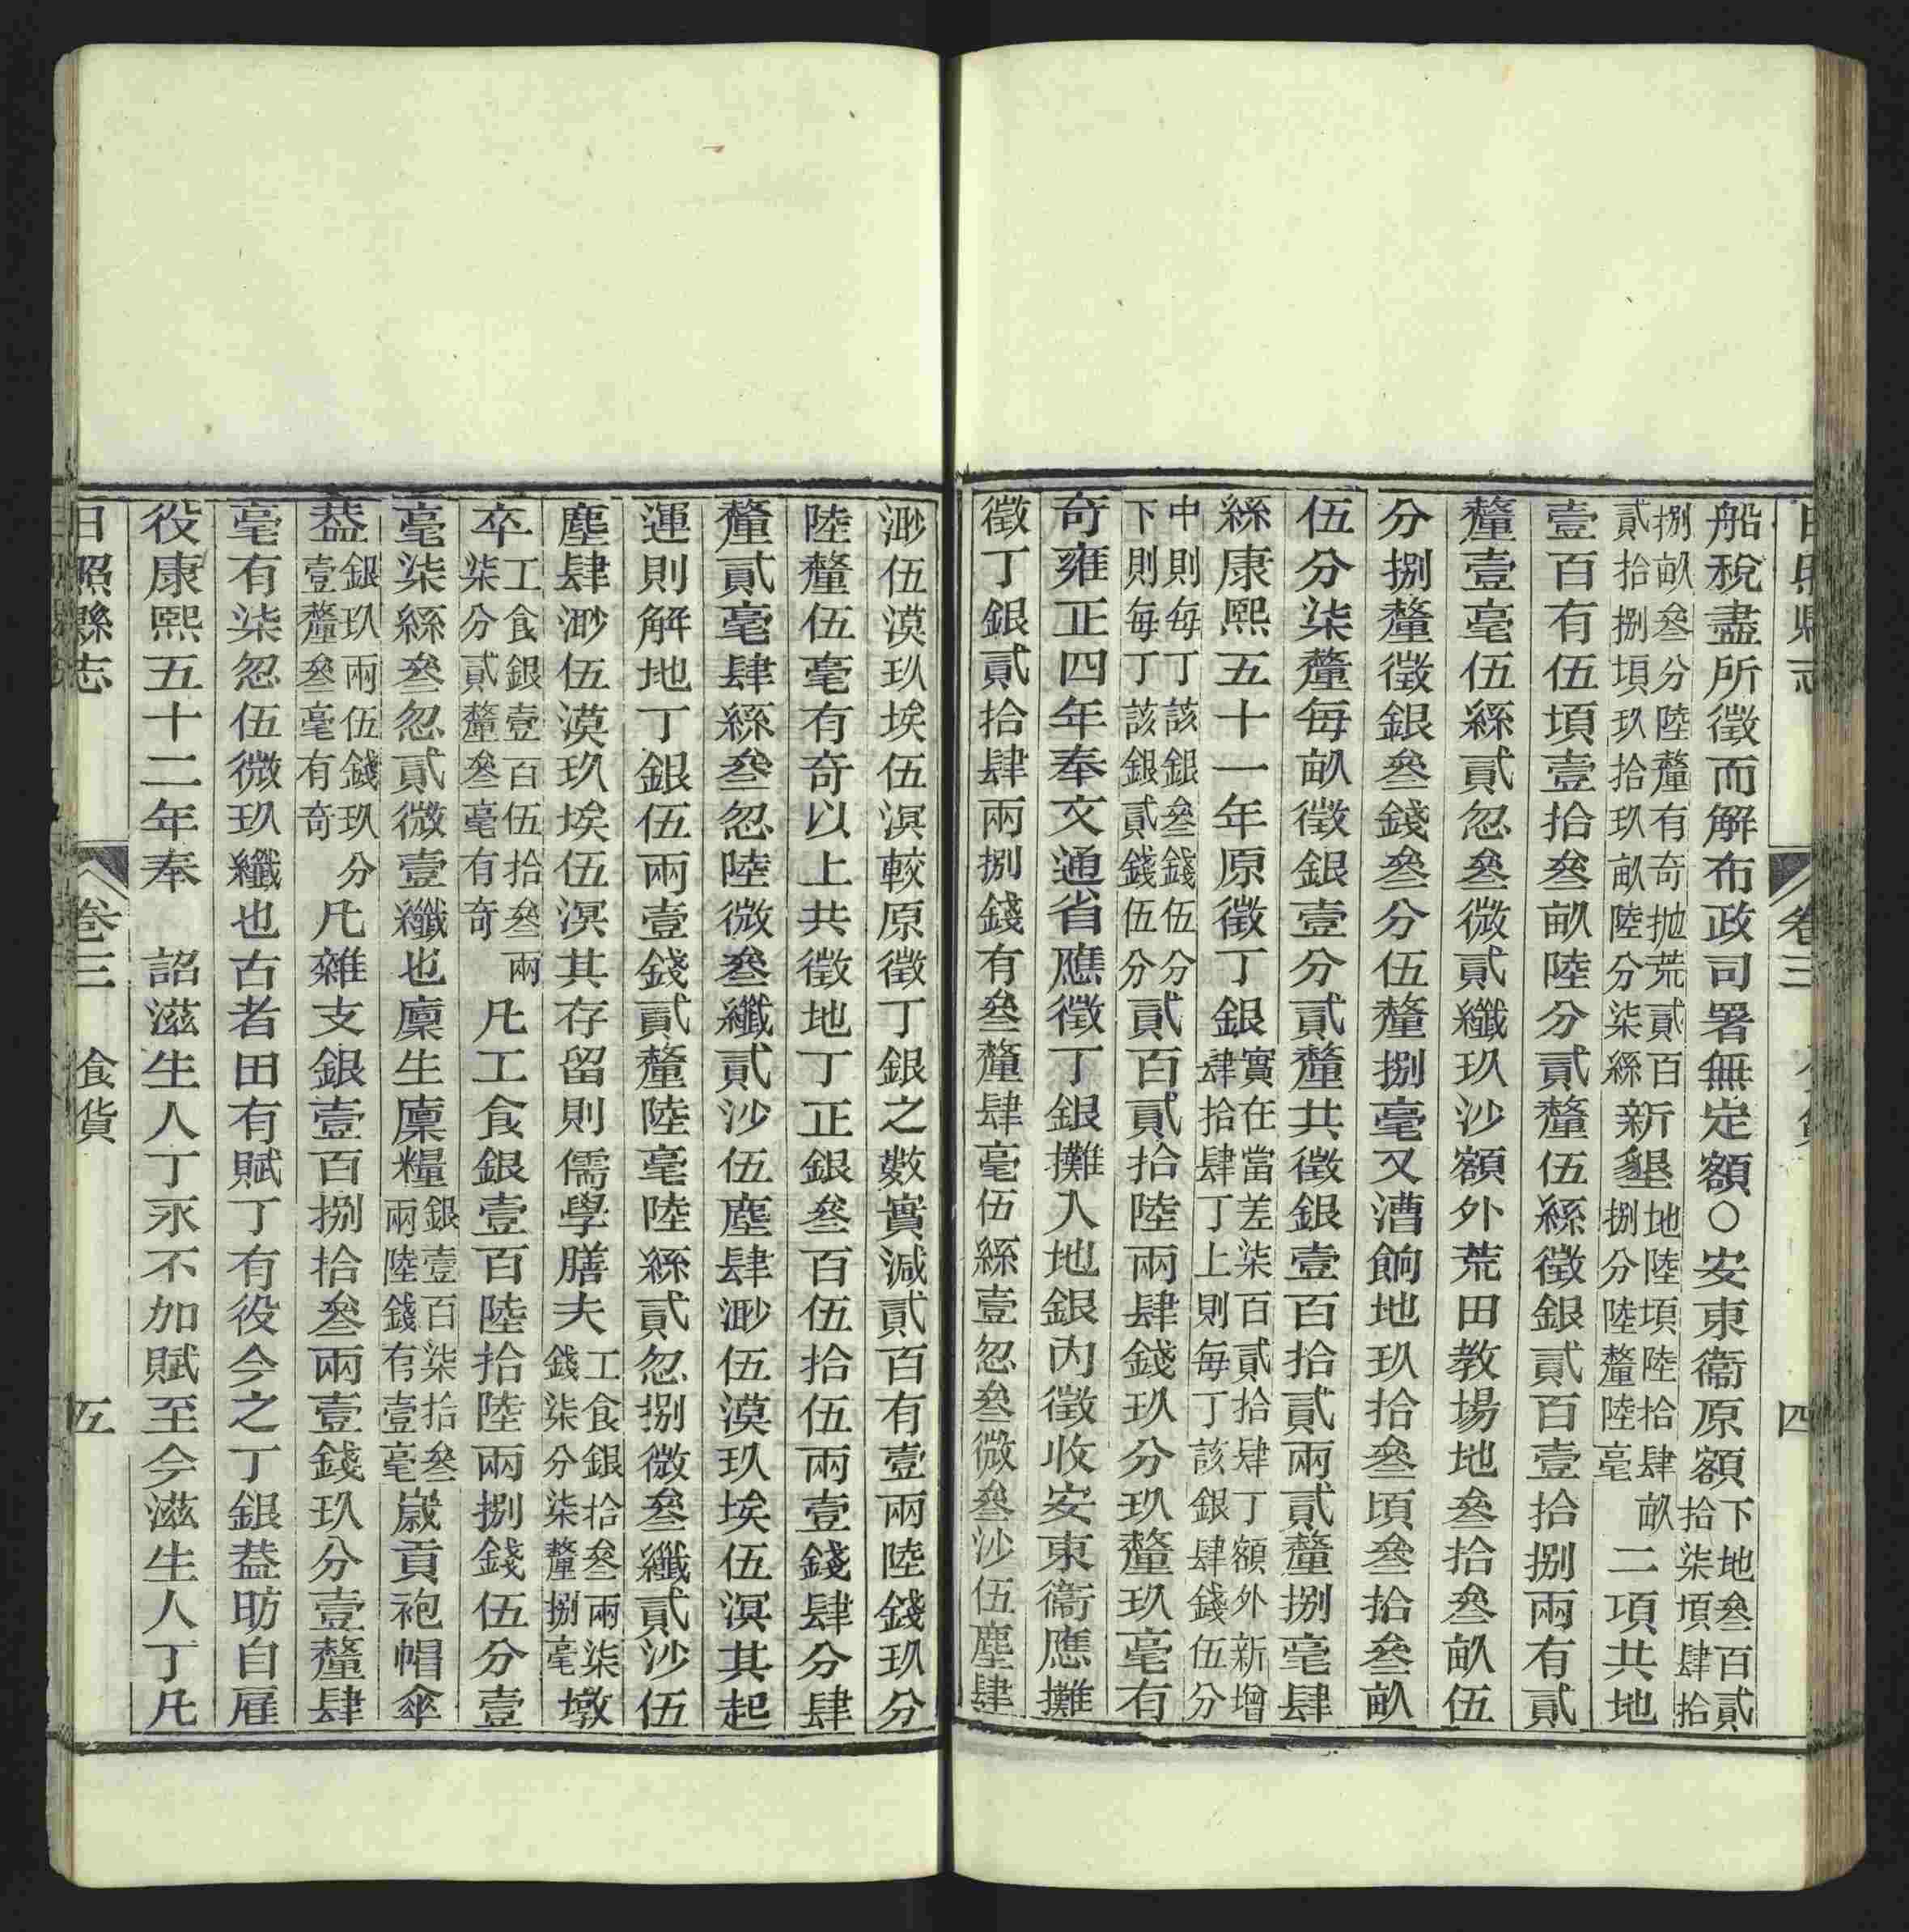 日照縣志 卷三 食貨 四
船稅盡所徵而解布政司署無定額○安東衞原額下地叄百貳拾柒頃肆拾
捌畝叄分陸釐有奇抛荒貳百貳拾捌頃玖拾玖畝陸分柒絲新墾地陸頃陸拾肆畝捌分陸釐陸毫二項共地
壹百有伍頃壹拾叄畝陸分貳釐伍絲徵銀貳百壹拾捌兩有貳
釐壹毫伍絲貳忽叄微貳纖玖沙額外荒田教場地叄拾叄畝伍
分捌釐徵銀叄錢叄分伍釐捌毫又漕餉地玖拾叄頃叄拾叄畝
伍分柒釐每畝徵銀壹分貳釐共徵銀壹百拾貳兩貳釐捌毫肆
絲康熙五十一年原徵丁銀實在當差柒百貳拾肆丁額外新增肆拾肆丁上則每丁該銀肆錢伍分
中則每丁該銀叄錢伍分下則每丁該銀貳錢伍分貳百貳拾陸兩肆錢玖分玖釐玖毫有
奇雍正四年奉文通省應徵丁銀攤入地銀內徵收安東衞應攤
徵丁銀貳拾肆兩捌錢有叄釐肆毫伍絲壹忽叄微叄沙伍塵肆
渺伍漠玖埃伍溟較原徵丁銀之數實減貳百有壹兩陸錢玖分
陸釐伍毫有奇以上共徵地丁正銀叄百伍拾伍兩壹錢肆分肆
釐貳毫肆絲叄忽陸微叄纖貳沙伍塵肆渺伍漠玖埃伍溟其起
運則解地丁銀伍兩壹錢貳釐陸毫陸絲貳忽捌微叄纖貳沙伍
塵肆渺伍漠玖埃伍溟其存留則儒學膳夫工食銀拾叄兩柒錢柒分柒釐捌毫墩
卒工食銀壹百伍拾叄兩柒分貳釐叄毫有奇凡工食銀壹百陸拾陸兩捌錢伍分壹
毫柒絲叄忽貳微壹纖也廩生廩糧銀壹百柒拾叄兩陸錢有壹毫嵗貢袍帽傘
葢銀玖兩伍錢玖分壹釐叄毫有奇凡雜支銀壹百捌拾叄兩壹錢玖分壹釐肆
毫有柒忽伍微玖纖也古者田有賦丁有役今之丁銀葢昉自雇
役康熙五十二年奉 詔滋生人丁永不加賦至今滋生人丁凡
日照縣志 卷三 食貨 五